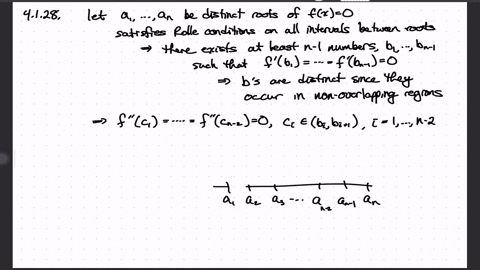 4.1.28. let a₁, ..., aₙ be distinct roots of f(x)=0
satisfies Rolle conditions on all intervals between roots
→ there exists at least n-1 numbers, b₁, ..., bₙ₋₁
such that f'(b₁) = ---- = f'(bₙ₋₁) = 0
⇒ b's are distinct since they
occur in non-overlapping regions
⇒ f''(c₁) = ---- = f''(cₙ₋₂) = 0, cᵢ ∈ (bᵢ, bᵢ₊₁), i = 1, ..., n-2
a₁ a₂ a₃ --- aₙ₋₂ aₙ₋₁ aₙ